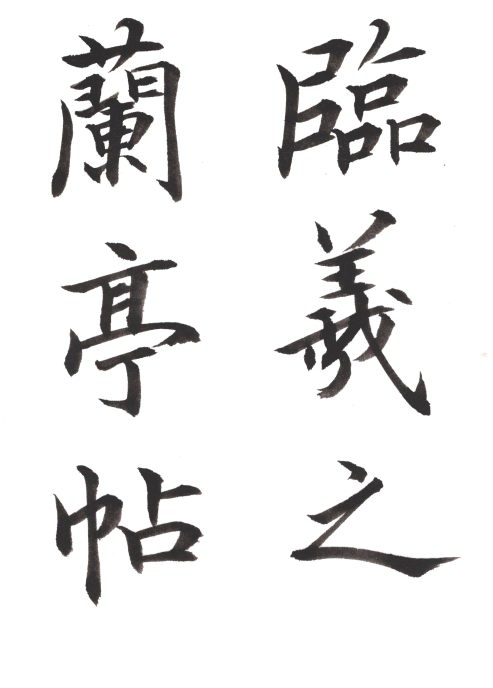 臨羲之
蘭亭帖